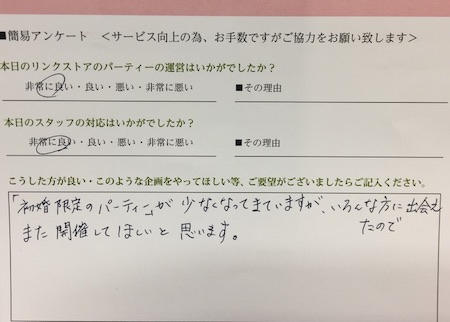 ■簡易アンケート　＜サービス向上の為、お手数ですがご協力をお願い致します＞
本日のリンクストアのパーティーの運営はいかがでしたか？
非常に良い・良い・悪い・非常に悪い　■その理由
本日のスタッフの対応はいかがでしたか？
非常に良い・良い・悪い・非常に悪い　■その理由
こうした方が良い・このような企画をやってほしい等、ご要望がございましたらご記入ください。
「初婚限定のパーティー」が少なくなってきていますが、いろんな方に出会え
たので
また開催してほしいと思います。